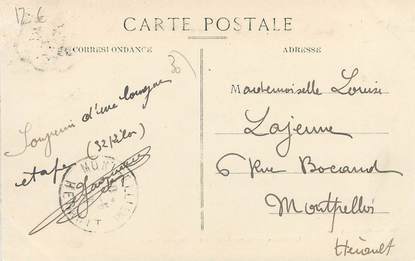 12-6
CARTE POSTALE
CORRESPONDANCE
ADRESSE
Souvenir d'une longue
etape (32 kilos)
Mademoiselle Louise
Lajeune
6 Rue Bocaud
Montpellier
Hérault
HERAULT